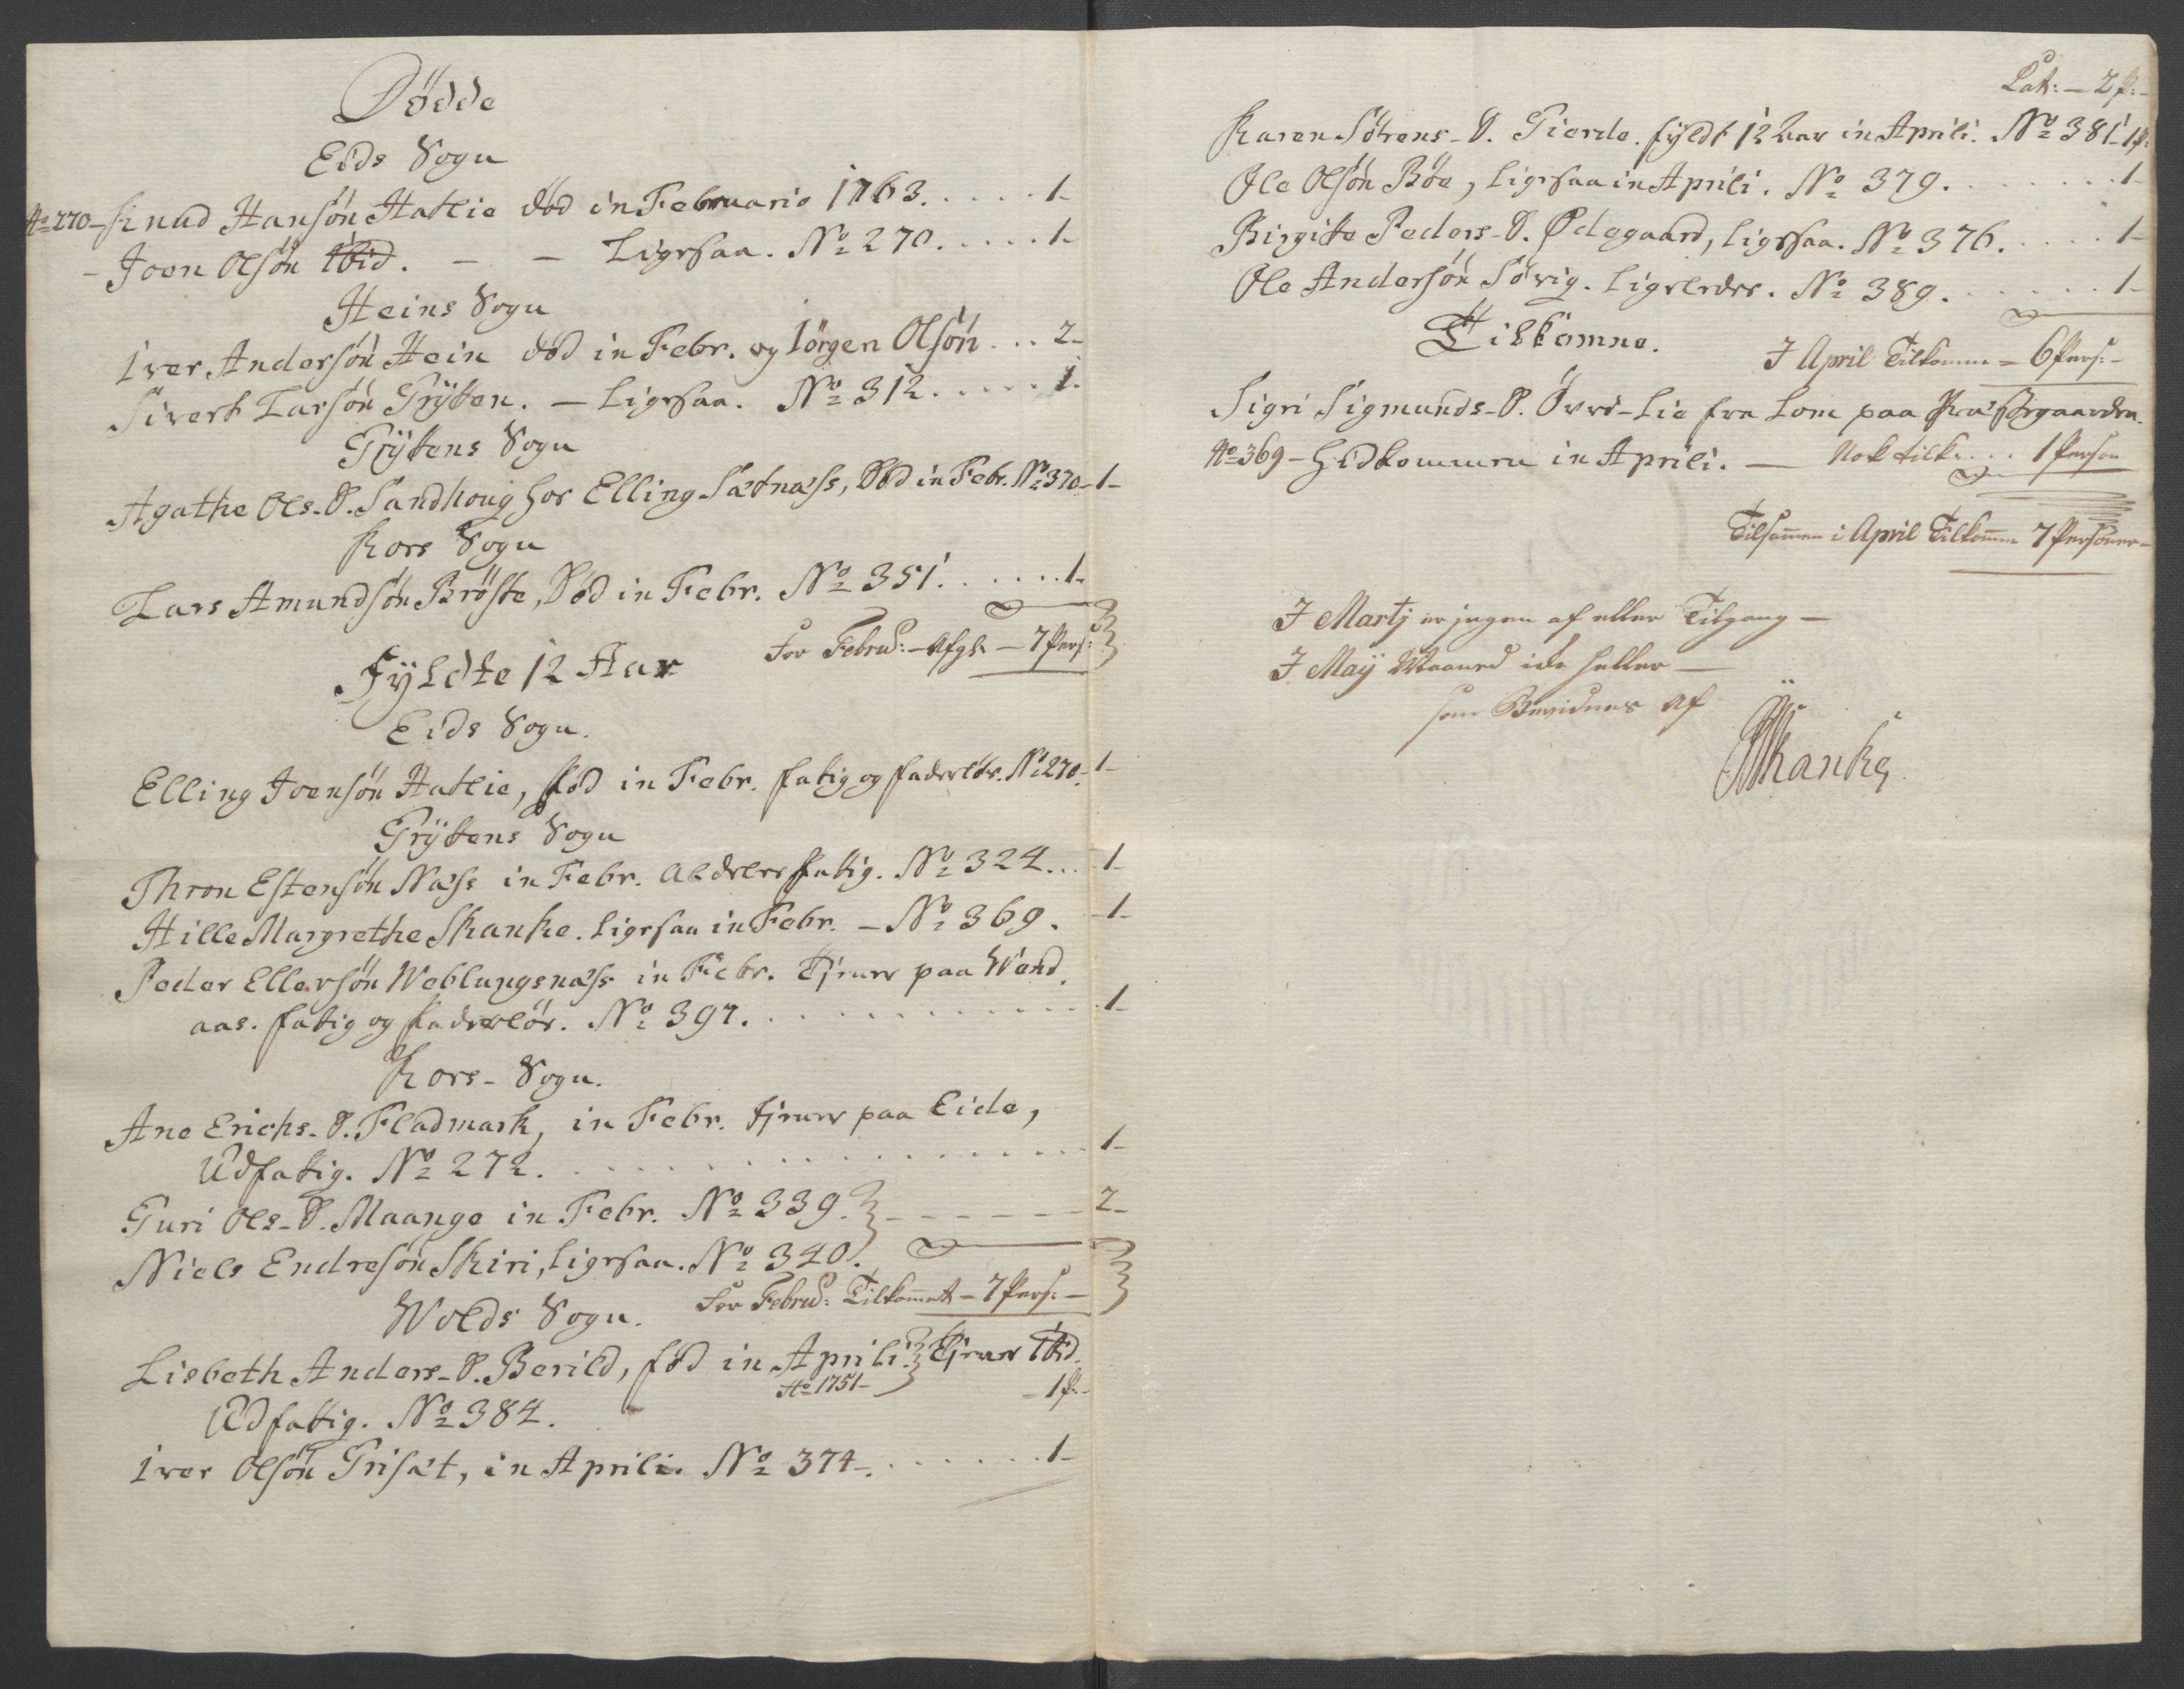 Dödde
Eids Sogn
No 270 - Knud Hansön Hatlie död in Februario 1763. . . . . . 1-
- Joen Olsön ibid. - - Ligesaa. No 270. . . . . 1-
Heins Sogn
Iver Andersön Hein död in Febr. og Jörgen Olsön . . . 2-
Sivert Larsön Grÿten. - Ligesaa. No 312. . . . . 1.
Grÿtens Sogn
Agathe Ols. D. Sandhoug hos Elling Sætnæss, Död in Febr. No 370 - 1-
Kors Sogn
Lars Amundsön Bröste, Död in Febr. No 351. . . . . . 1-
For Febru: - Afg. - 7 Pers:
Fÿldte 12 Aar
Eids Sogn.
Elling Joensön Hatlie, född in Febr. fatig og faderlös. No 270. - 1-
Grÿtens Sogn
Thron Estensön Næss in Febr. Aldeles fatig. No 324. . . 1-
Hille Margrethe Skanke. Ligesaa in Febr. - No 369. - 1-
Peder Ellersön Weblungsnæss in Febr. Tjener paa Wend
aas. fatig og faderlös. No 397. . . . . . . . . . . 1-
Kors - Sogn.
Ane Erichs. D. Fladmark, in Febr. tjener paa Eide,
Udfatig. No 272. . . . . . . . . . . . . . . . 1-
Guri Ols. D. Maange in Febr. No 339. } - - - - - - 2-
Niels Endresön Skiri, Ligesaa. No 340.
For Febru: Tilkommet - 7 Pers: -
Wolds Sogn.
Lisbeth Anders. D. Berild, föd in Aprili } Tjener ibid.
Ao 1751 - - 1 P: -
Udfatig. No 384.
Iver Olsön Grisæt, in Aprili. No 374 - . . . . . . . 1-
Lat: - 2 P: -
Karen Sörens. D. Gierde. fyldt 12 Aar in Aprili. No 381 - 1 P:
Ole Olsön Böe, Ligesaa in Aprili. No 379. . . . . . . . 1-
Birgitte Peders. D. Ödegaard, Ligesaa. No 376. . . . . 1-
Ole Andersön Sövig. Ligeledes. No 389. . . . . . . 1-
Tilkomne.
I April Tilkomne - 6 Pers: -
Sigri Sigmunds. D. Övre-Lie fra Lom paa Præstegaarden.
No 369 - hidkommen in Aprili. - Nok tilk. . . . 1 Person
Tilsamen i April Tilkomne 7 Personer -
I Martj er ingen af eller Tilgang -
I Maÿ Maaned icke heller -
som Bevidnes af
Skanke